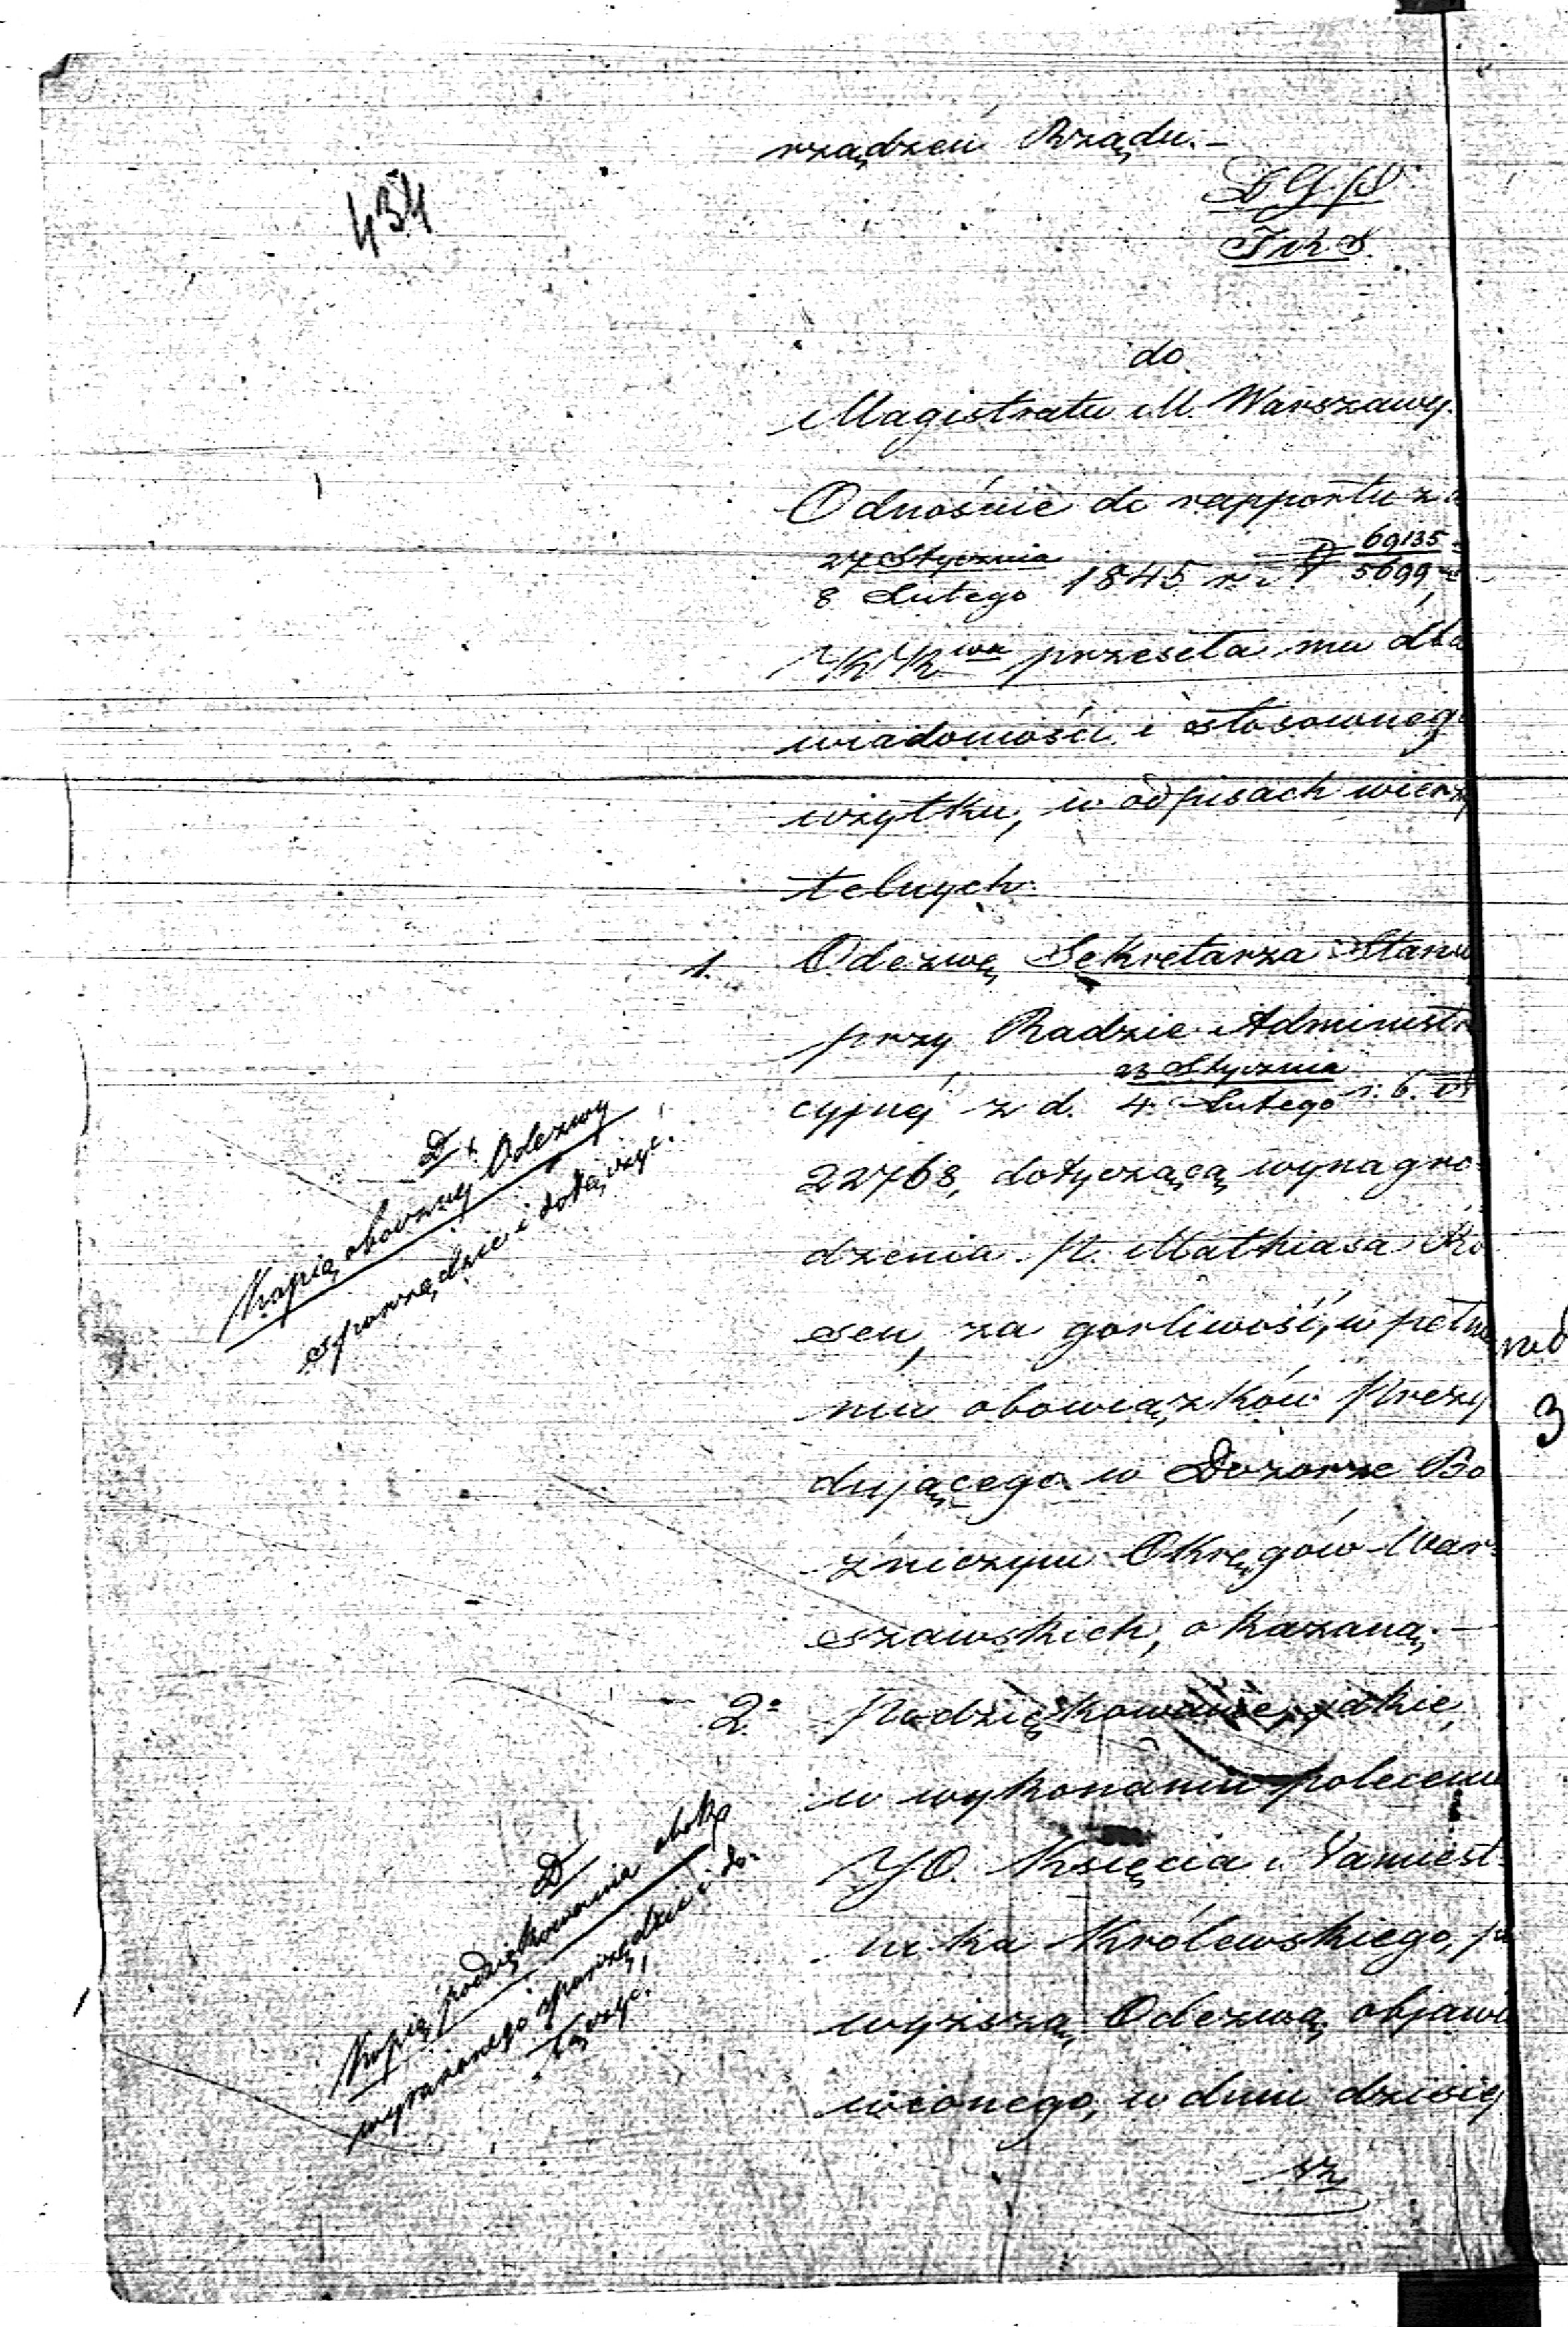 434
rządzeń Rządu.-
D.G.R.
do
Magistratu M. Warszawy.
Odnośnie do rapportu z
27 Stycznia
8 Lutego 1845 r. N 69135
5699,
przeseła mu dla
wiadomości i stosownego
użytku, w odpisach wierzy
telnych.
1. Odezwę Sekretarza Stanu
przy Radzie Administra
cyjnej z d. 23 Stycznia
4 Lutego r. b. N
22768, dotyczącą wynagro
dzenia P. Mathiasa Ro
sen, za gorliwość, w pełnie
niu obowiązków Prezy
dującego w Dozorze Bo
źniczym Okręgów War
szawskich, okazaną.-
D
Kopię obocznej Odezwy
sporządzić i dołączyć.
2. Podziękowanie, jakie
w wykonaniu polecenia
JO. Księcia Namiest
nika Królewskiego, po
wyższą Odezwą objawi
wionego, w dniu dzisiej
D
Kopię podziękowania obok
wyrażonego sporządzić i do-
łączyć.
3